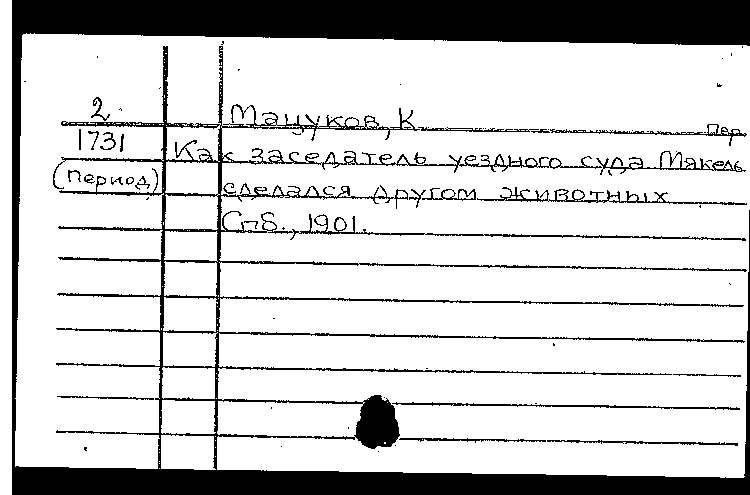 2
Мацуков, К
Пер.
1731
Как заседатель уездного суда Мякель
(период)
сделался другом животных
Спб., 1901.